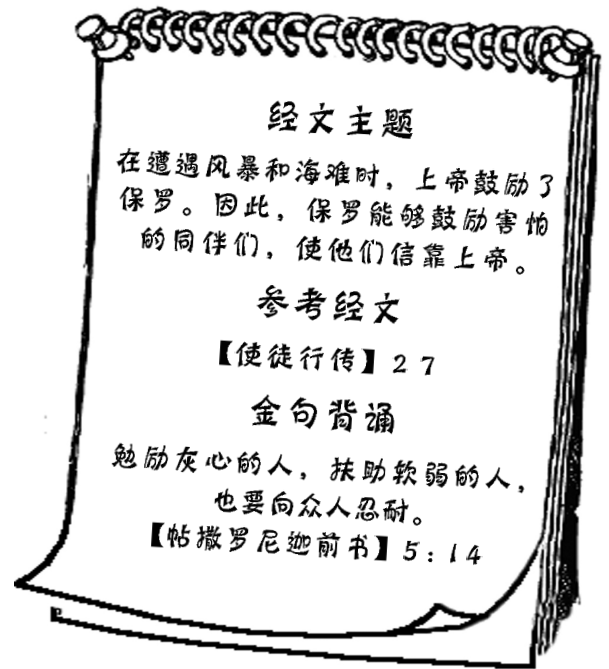 经文主题
在遭遇风暴和海难时，上帝鼓励了
保罗。因此，保罗能够鼓励害怕
的同伴们，使他们信靠上帝。
参考经文
【使徒行传】27
金句背诵
勉励灰心的人，扶助软弱的人，
也要向众人忍耐。
【帖撒罗尼迦前书】5：14